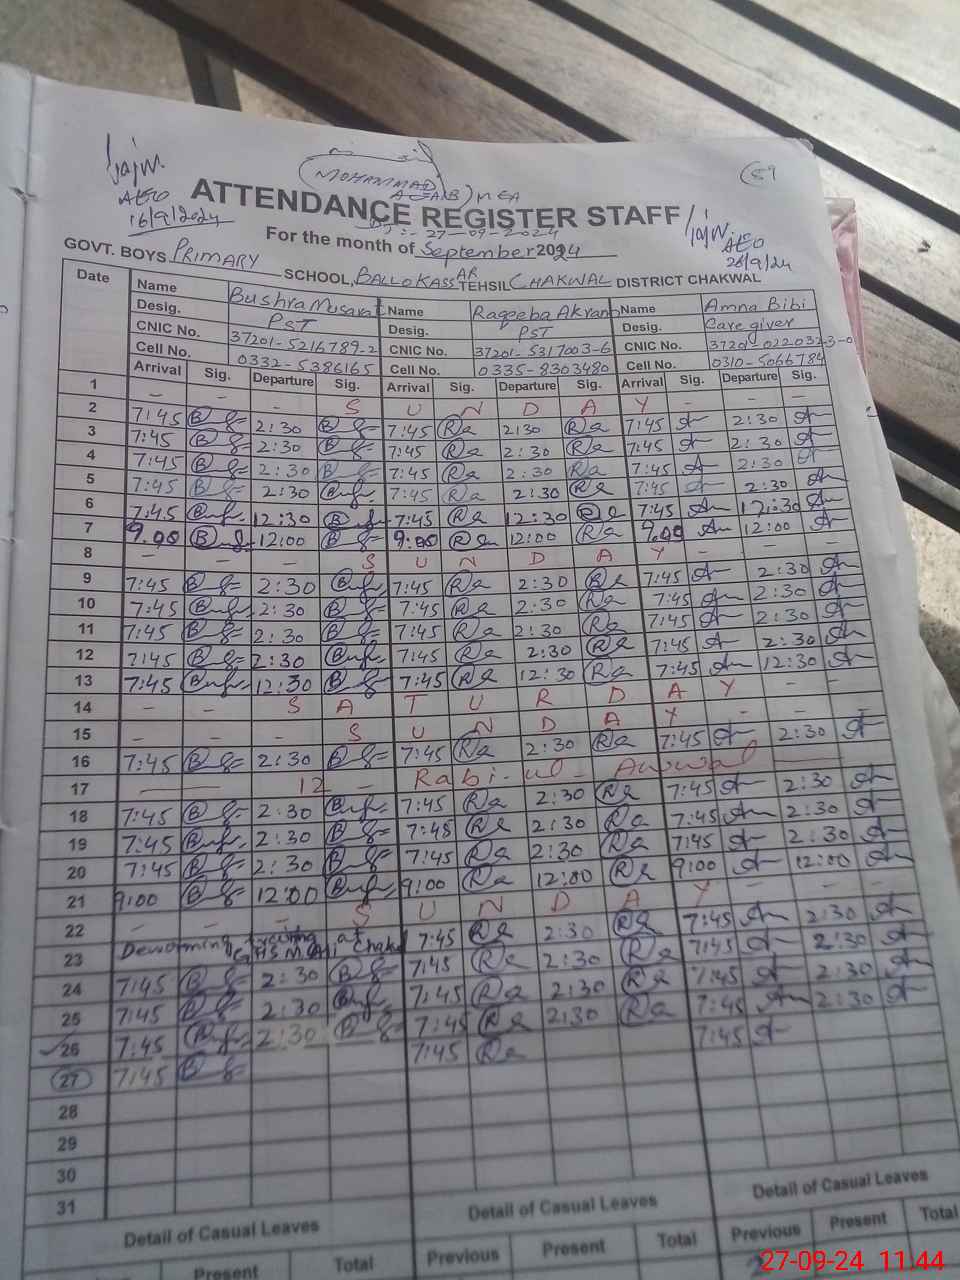 AEO
16/9/2024
MOHAMMAD
MEA
59
ATTENDANCE REGISTER STAFF
27-09-2024
AEO
26/9/24
For the month of September 2024
GOVT. BOYS PRIMARY SCHOOL, BALLOKASSAR TEHSIL CHAKWAL DISTRICT CHAKWAL
Date Name Bushra Musarat Name Raqeeba Akram Name Amna Bibi
Desig. PST Desig. PST Desig. Care giver
CNIC No. 37201-5216789-2 CNIC No. 37201-5317003-6 CNIC No. 37201-0220323-0
Cell No. 0332-5386165 Cell No. 0335-8303480 Cell No. 0310-5066784
Arrival Sig. Departure Sig. Arrival Sig. Departure Sig. Arrival Sig. Departure Sig.
1 - - - S U N D A Y - - -
2 7:45 2:30 7:45 2:30 7:45 2:30
3 7:45 2:30 7:45 2:30 7:45 2:30
4 7:45 2:30 7:45 2:30 7:45 2:30
5 7:45 2:30 7:45 2:30 7:45 2:30
6 7:45 12:30 7:45 12:30 7:45 12:30
7 9:00 12:00 9:00 12:00 9:00 12:00
8 - - - S U N D A Y - - -
9 7:45 2:30 7:45 2:30 7:45 2:30
10 7:45 2:30 7:45 2:30 7:45 2:30
11 7:45 2:30 7:45 2:30 7:45 2:30
12 7:45 2:30 7:45 2:30 7:45 2:30
13 7:45 12:30 7:45 12:30 7:45 12:30
14 - - S A T U R D A Y - -
15 - - - S U N D A Y - - -
16 7:45 2:30 7:45 2:30 7:45 2:30
17 12 - Rabi-ul-Awwal
18 7:45 2:30 7:45 2:30 7:45 2:30
19 7:45 2:30 7:45 2:30 7:45 2:30
20 7:45 2:30 7:45 2:30 7:45 2:30
21 9:00 12:00 9:00 12:00 9:00 12:00
22 - - - S U N D A Y - - -
23 Deworming at 7:45 2:30 7:45 2:30
24 7:45 2:30 7:45 2:30 7:45 2:30
25 7:45 2:30 7:45 2:30 7:45 2:30
26 7:45 2:30 7:45 2:30 7:45 2:30
27 7:45 7:45 7:45
28
29
30
31
Detail of Casual Leaves Detail of Casual Leaves Detail of Casual Leaves
Present Total Previous Present Total Previous Present Total
27-09-24 11:44